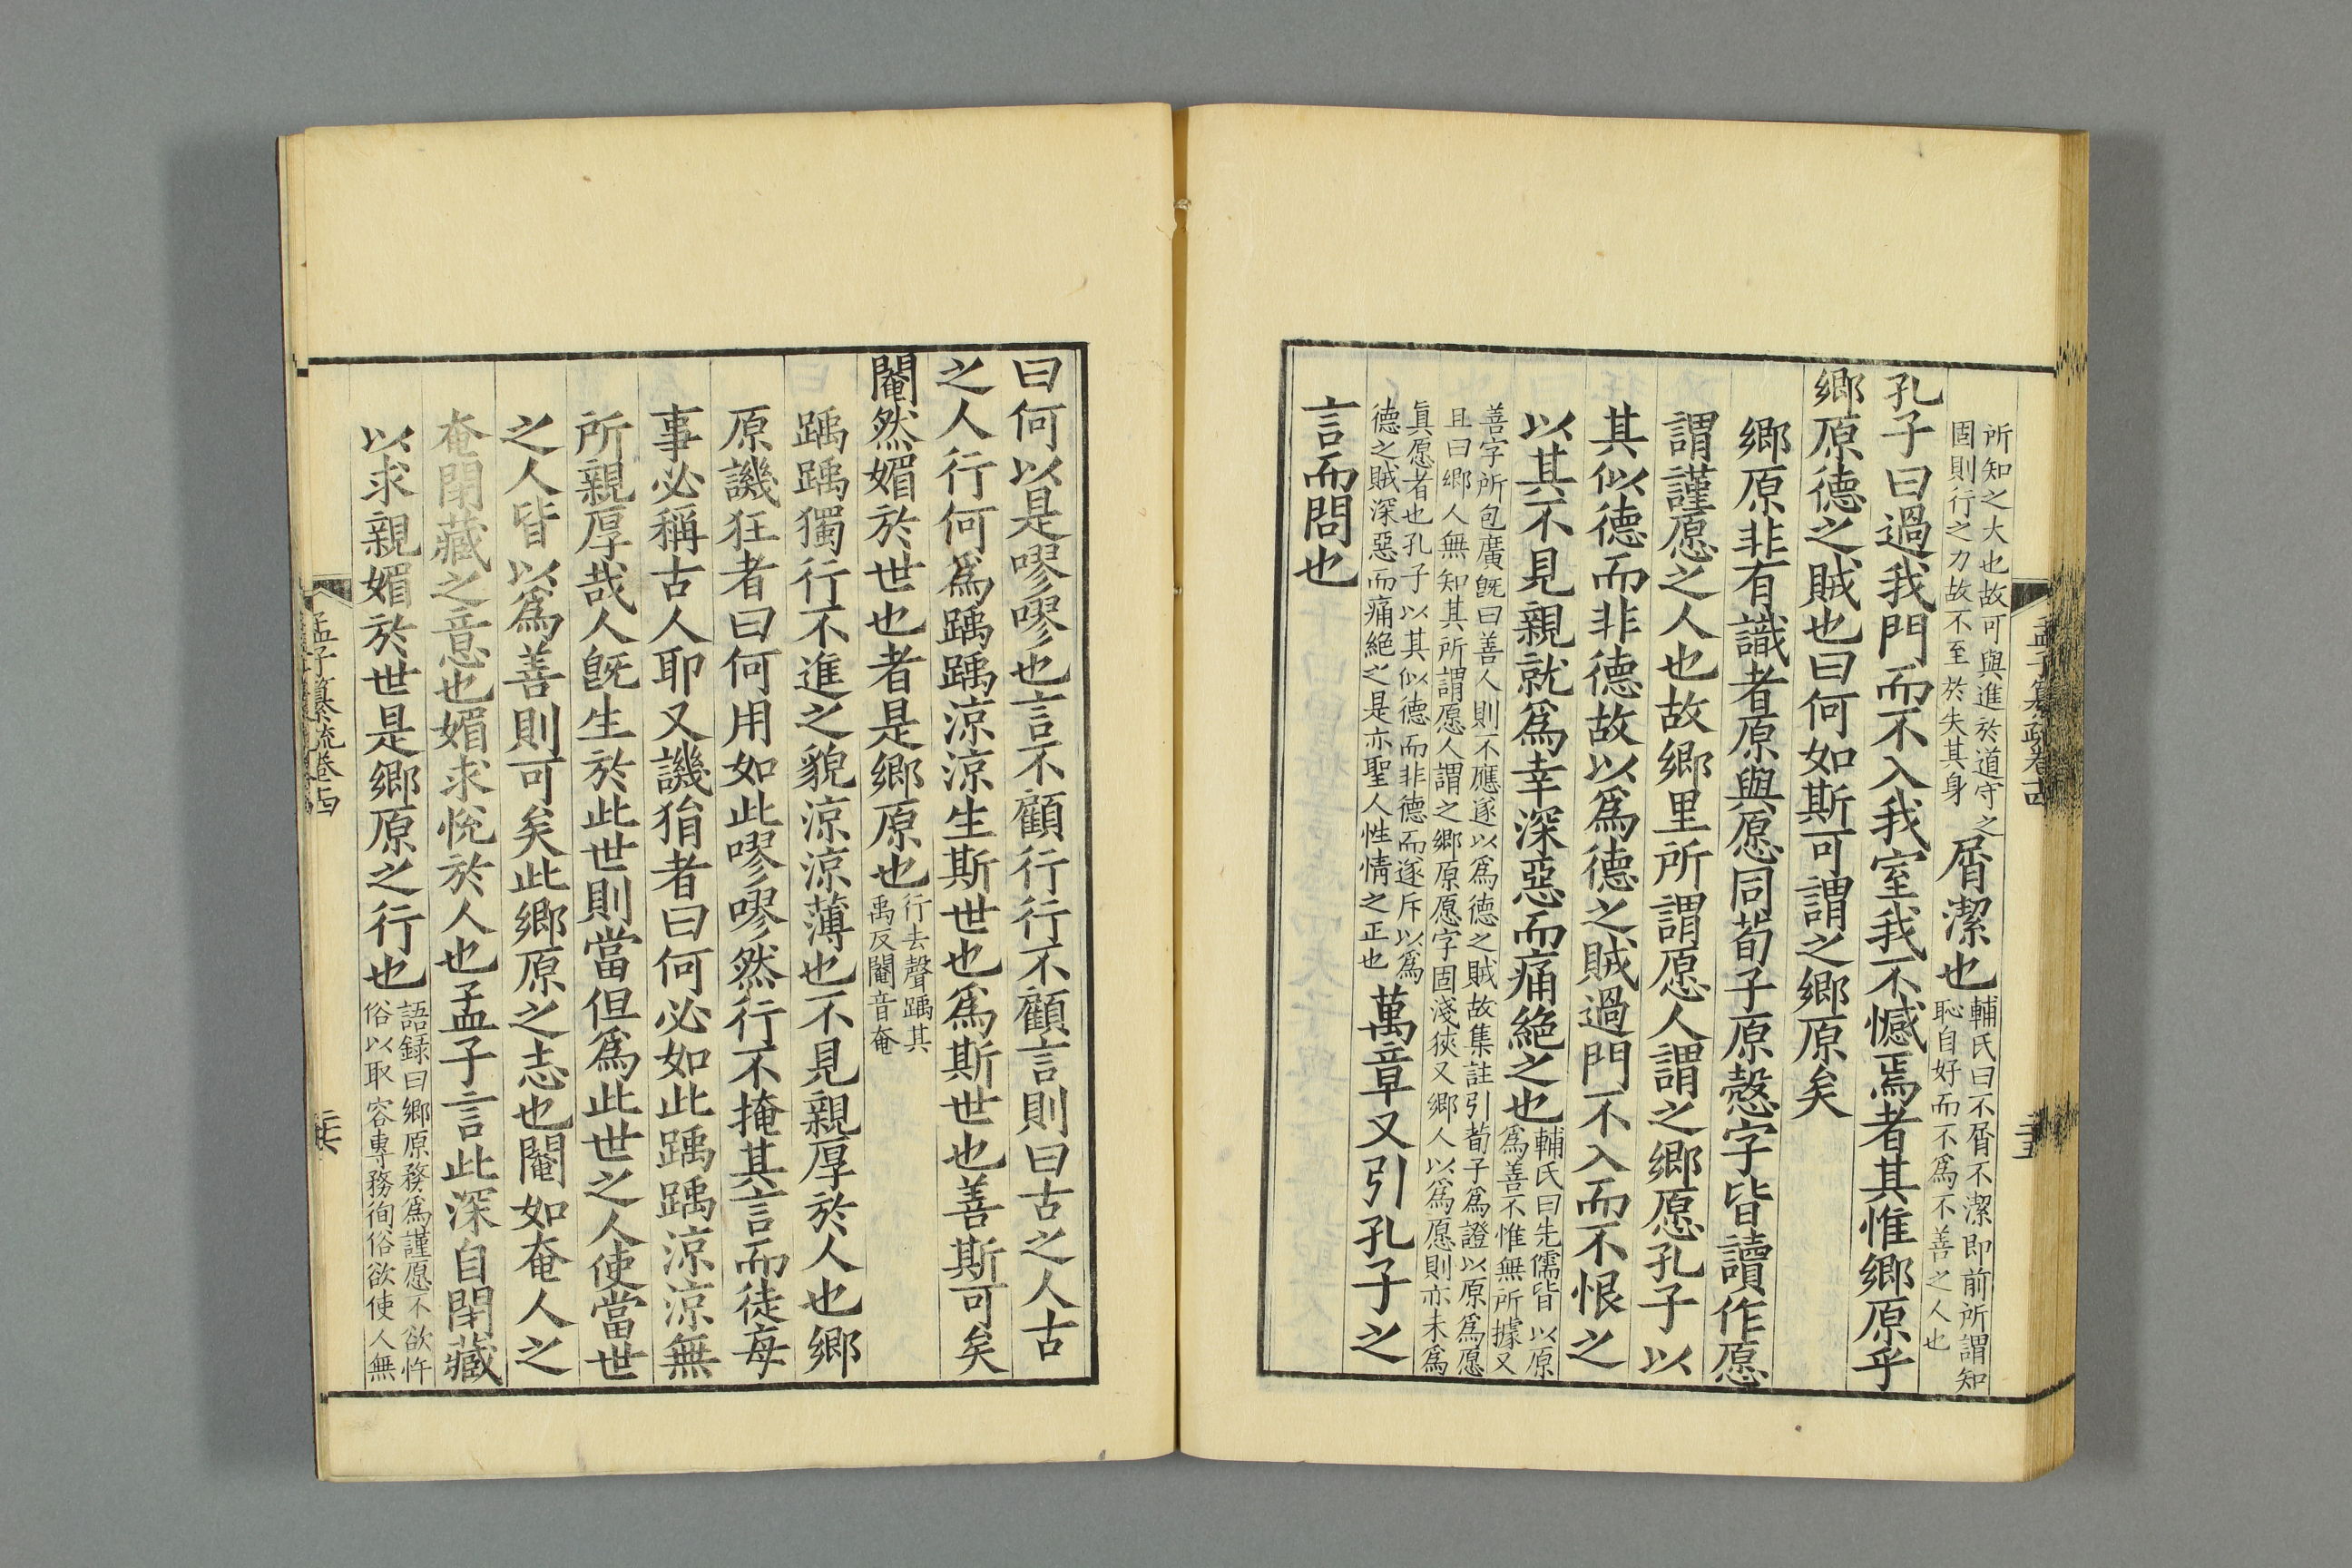 所知之大也故可與進於道守之
固則行之力故不至於失其身
屑潔也
輔氏曰不屑不潔即前所謂知
恥自好而不爲不善之人也
孔子曰過我門而不入我室我不憾焉者其惟鄉原乎
鄉原德之賊也曰何如斯可謂之鄉原矣
鄉原非有識者原與愿同荀子原慤字皆讀作愿
謂謹愿之人也故鄉里所謂愿人謂之鄉愿孔子以
其似德而非德故以爲德之賊過門不入而不恨之
以其不見親就爲幸深惡而痛絶之也
輔氏曰先儒皆以原
爲善不惟無所據又
善字所包廣旣曰善人則不應遂以爲德之賊故集註引荀子爲證以原爲愿
且曰鄉人無知其所謂愿人謂之鄉原愿字固淺狹又鄉人以爲愿則亦未爲
眞愿者也孔子以其似德而非德而遂斥以爲
德之賊深惡而痛絶之是亦聖人性情之正也
萬章又引孔子之
言而問也
孟子纂疏卷十四
二十五
曰何以是嘐嘐也言不顧行行不顧言則曰古之人古
之人行何爲踽踽涼涼生斯世也爲斯世也善斯可矣
閹然媚於世也者是鄉原也
行去聲踽其
禹反閹音奄
踽踽獨行不進之貌涼涼薄也不見親厚於人也鄉
原譏狂者曰何用如此嘐嘐然行不掩其言而徒每
事必稱古人耶又譏狷者曰何必如此踽踽涼涼無
所親厚哉人旣生於此世則當但爲此世之人使當世
之人皆以爲善則可矣此鄉原之志也閹如奄人之
奄閉藏之意也媚求悅於人也孟子言此深自閉藏
以求親媚於世是鄉原之行也
語録曰鄉原務爲謹愿不欲忤
俗以取容專務徇俗欲使人無
孟子纂疏卷十四
二十六